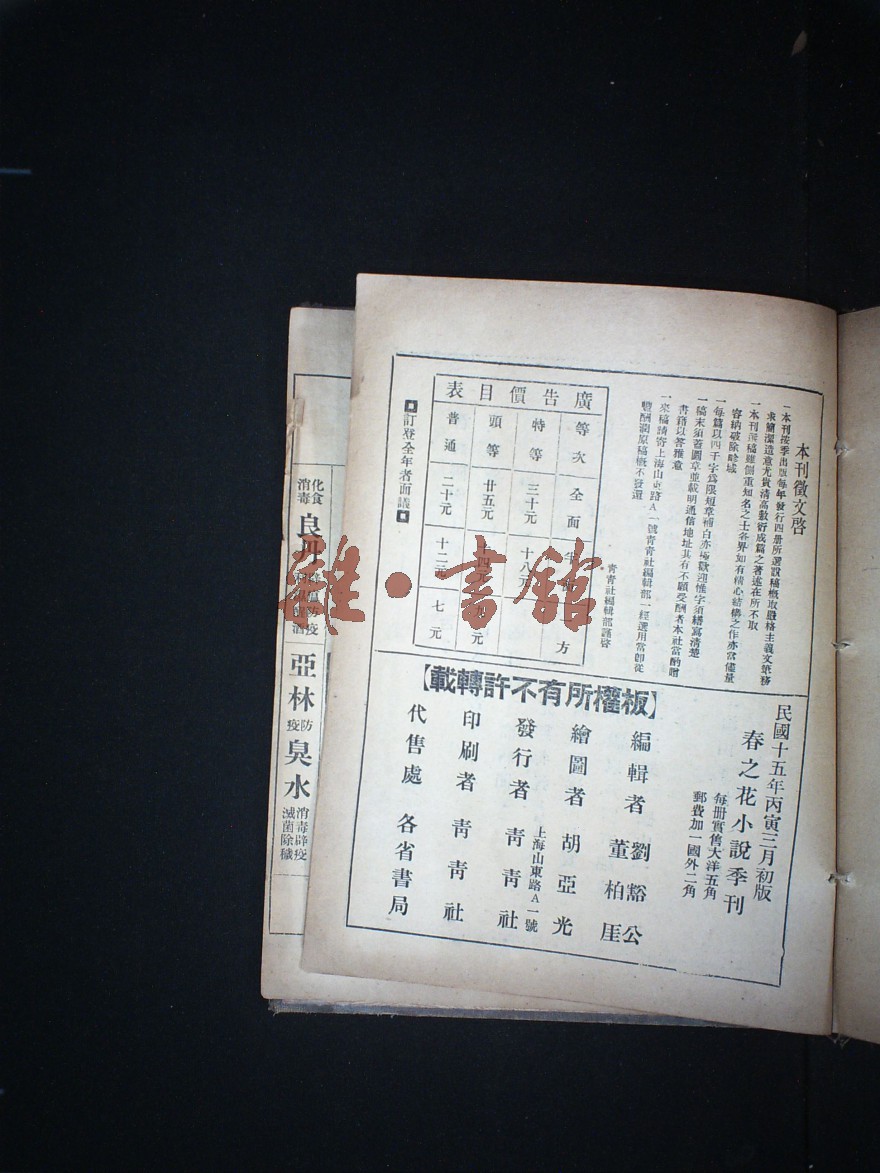 本刊徵文啓
一本刊按季出版每年發行四册所選說稿概取嚴格主義文筆務
求簡潔造意尤貴清高敷衍成篇之著述在所不取
一本刊撰稿雖側重知名之士各界如有精心結構之作亦當儘量
容納破除畛域
一每篇以四千字爲限短章補白亦極歡迎惟字須繕寫清楚
一稿末須蓋圖章並載明通信地址其有不願受酬者本社當酌贈
書籍以答雅意
一來稿請寄上海山東路A一號靑靑社編輯部一經選用當卽從
豐酬潤原稿概不發還
靑靑社編輯部謹啓
廣告價目表
等次 全面
特等 三十元 十八元
頭等 廿五元 十四元
普通 二十元 十二元 七元
訂登全年者面議
民國十五年丙寅三月初版
春之花小說季刊
每册實售大洋五角
郵費加一國外二角
【板權所有不許轉載】
編輯者 劉豁公
董柏厓
繪圖者 胡亞光
發行者 靑靑社
上海山東路A一號
印刷者 靑靑社
代售處 各省書局
化食
消毒
良丹
防疫
亞林
防疫
臭水
消毒辟疫
滅菌除穢
雜·書館